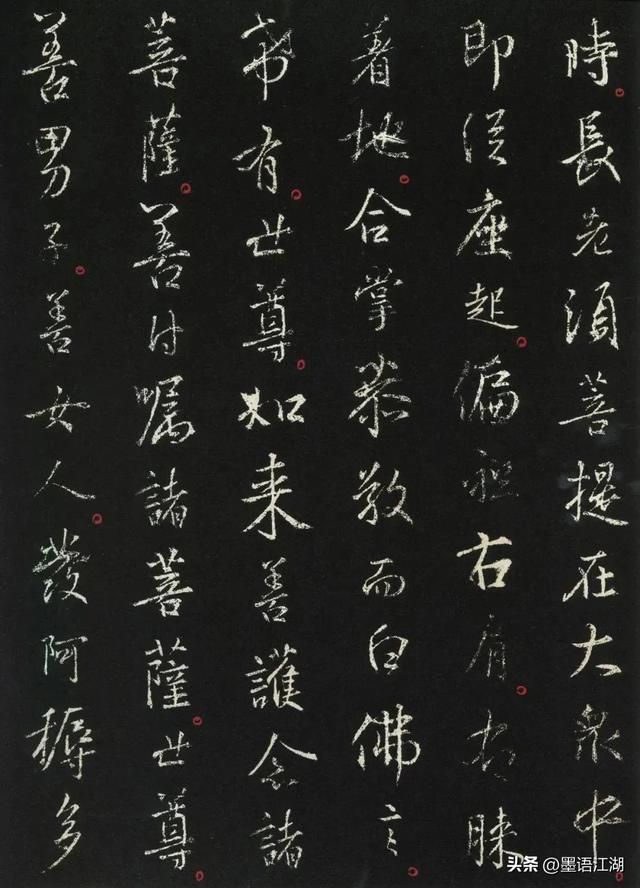 時。長老須菩提在大衆中。
即從座起。偏袒右肩。右膝
着地。合掌恭敬而白佛言。
希有。世尊。如来善護念諸
菩薩。善付囑諸菩薩。世尊。
善男子。善女人。發阿耨多
头条 @墨语江湖